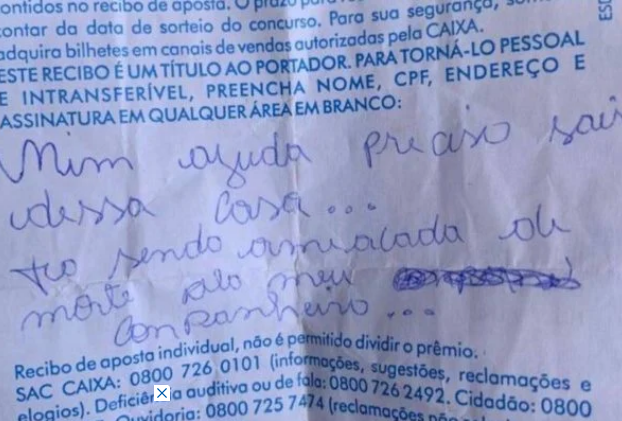 ontidos no recibo de aposta. O prazo para
contar da data de sorteio do concurso. Para sua segurança, som
adquira bilhetes em canais de vendas autorizadas pela CAIXA.
ESTE RECIBO É UM TÍTULO AO PORTADOR. PARA TORNÁ-LO PESSOAL
E INTRANSFERÍVEL, PREENCHA NOME, CPF, ENDEREÇO E
ASSINATURA EM QUALQUER ÁREA EM BRANCO:
Mim ajuda preciso sai
dessa casa...
to sendo ameaçada de
morte pelo meu
companheiro...
Recibo de aposta individual, não é permitido dividir o prêmio.
SAC CAIXA: 0800 726 0101 (informações, sugestões, reclamações e
elogios). Deficiên a auditiva ou de fala: 0800 726 2492. Cidadão: 0800
Ouvidoria: 0800 725 7474 (reclamações não